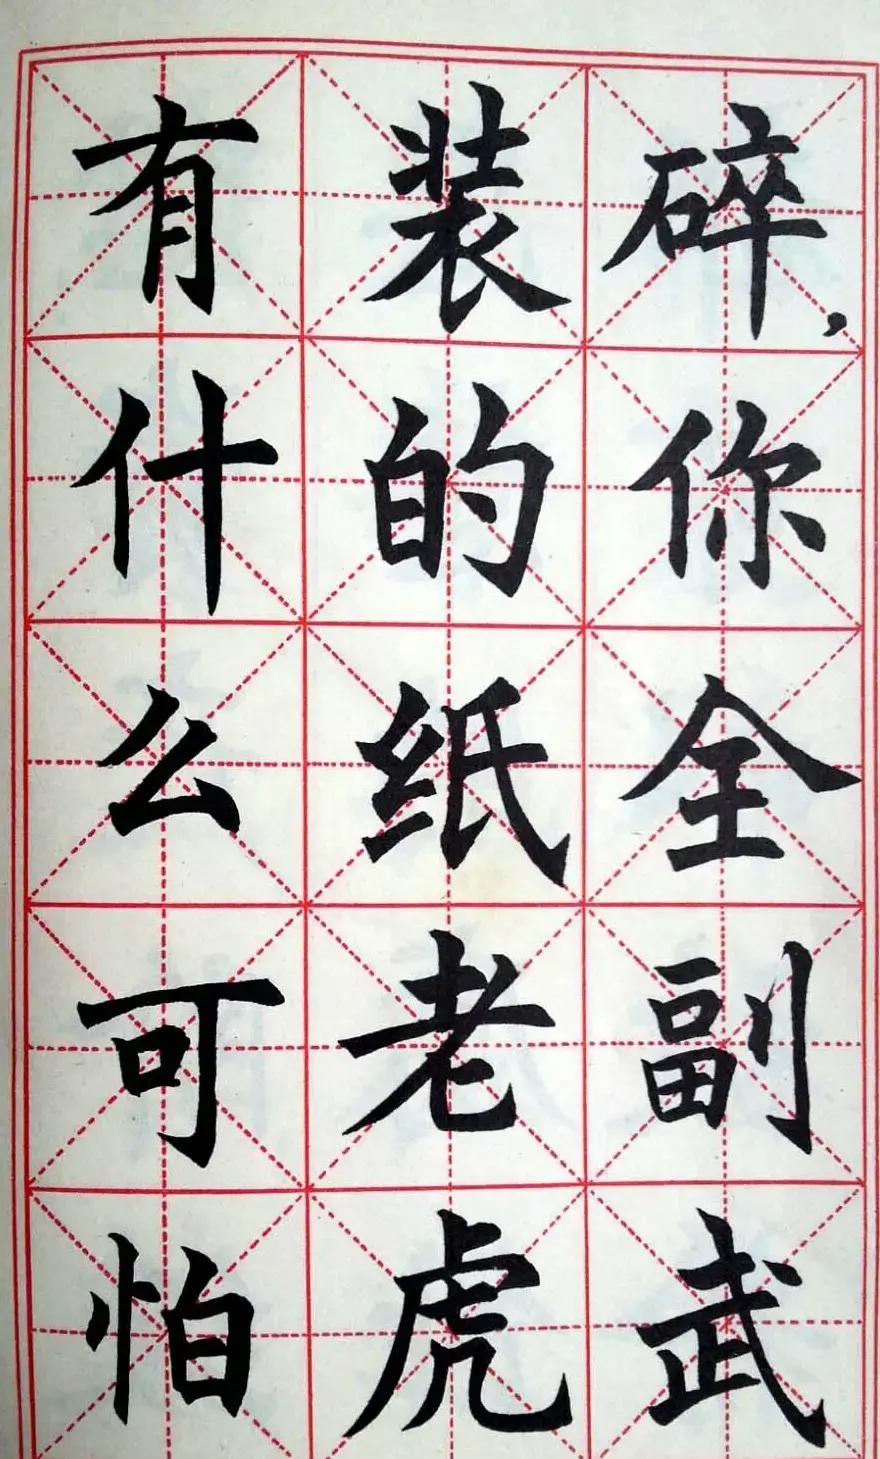 碎，你全副武
装的纸老虎
有什么可怕